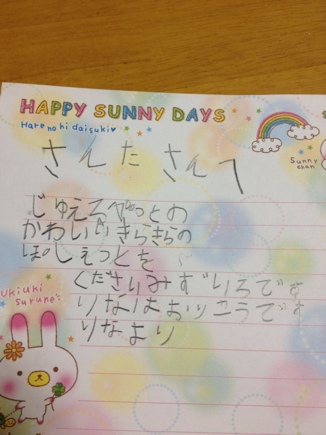 HAPPY SUNNY DAYS
Hare no hi daisuki♥
Sunny chan
さんたさんへ
じゅえるぺっとの
かわいいきらきらの
ぽしぇっとを
くださいみずいろです
りなはおりこうです
りなより
Ukiuki surune